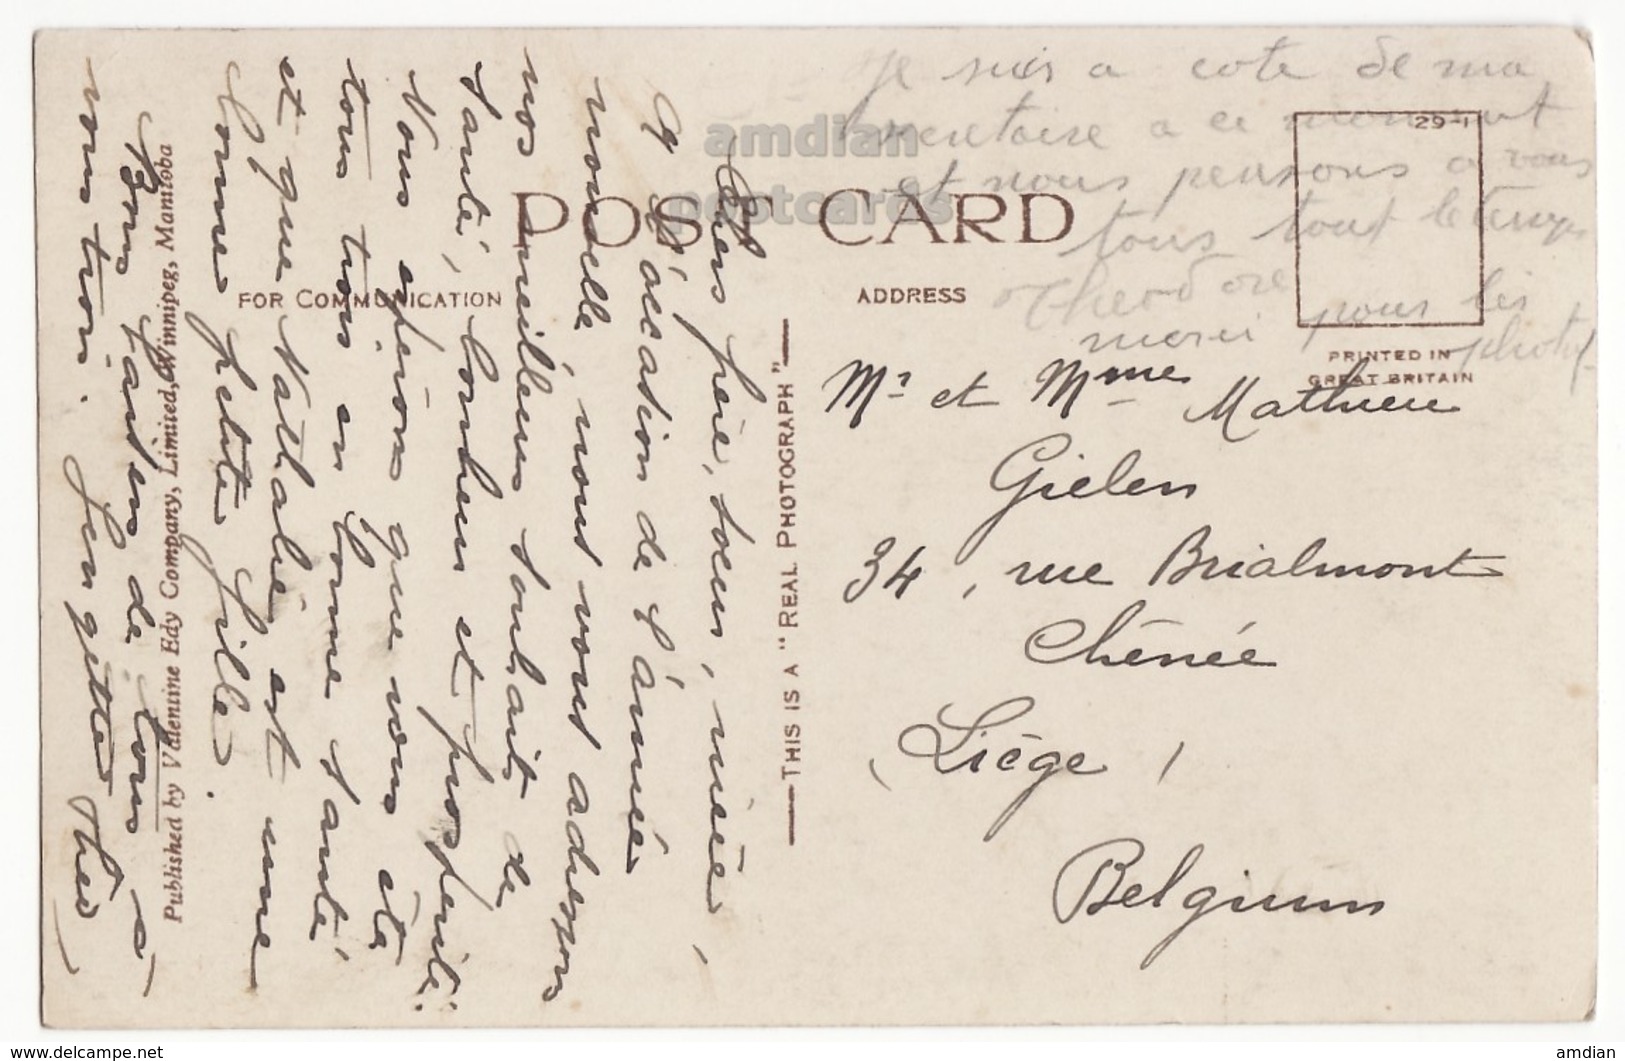 POST CARD
FOR COMMUNICATION
ADDRESS
29-1
PRINTED IN
GREAT BRITAIN
THIS IS A "REAL PHOTOGRAPH"
Published by Valentine Edy Company, Limited, Winnipeg, Manitoba
Chers frère, soeur, nièce,
A l'occasion de l'année
nouvelle, nous vous adressons
nos meilleurs souhaits de
santé, bonheur et prospérité.
Nous espérons que vous êtes
tous trois en bonne santé
et que Nathalie est une
bonne petite fille.
Bons baisers de tous à
vous trois.
je suis a cote de ma
secretaire a ce moment
et nous pensons a vous
tous tout le temps
Theodore
merci pour les
photos
Mr et Mme Mathieu
Gielen
34, rue Brialmont
Chênée
(Liège)
Belgium
amdian
postcards
www.delcampe.net
amdian